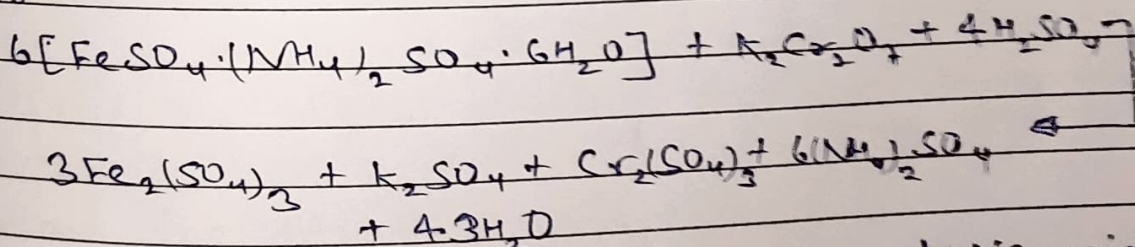 6[FeSO₄·(NH₄)₂SO₄·6H₂O] + K₂Cr₂O₇ + 4H₂SO₄
3Fe₂(SO₄)₃ + K₂SO₄ + Cr₂(SO₄)₃ + 6(NH₄)₂SO₄
+ 43H₂O